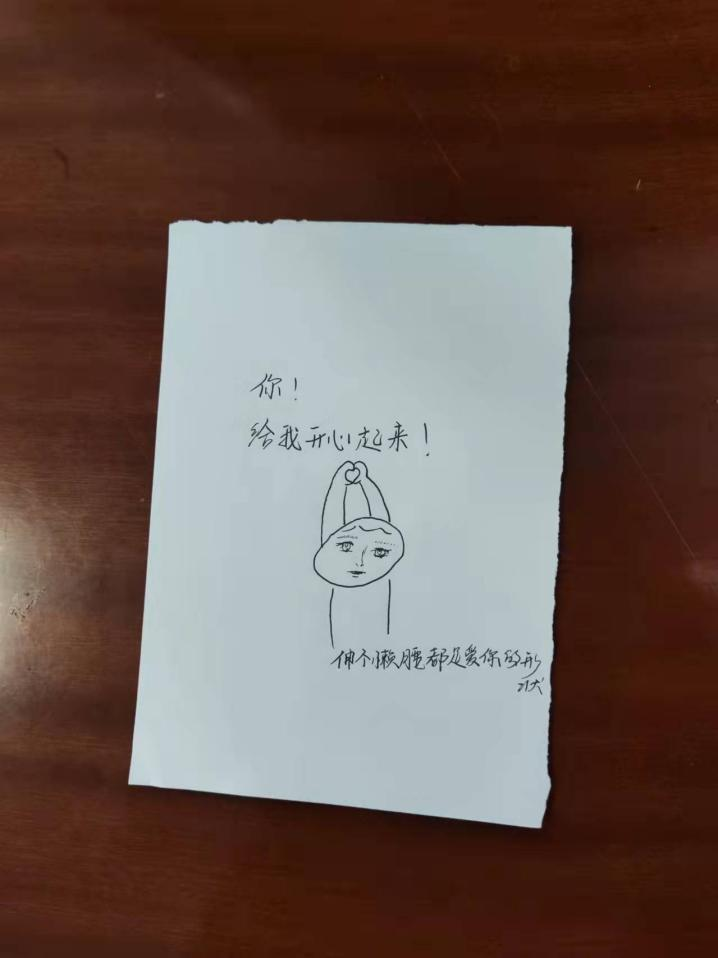 你！
给我开心起来！
伸个懒腰都是爱你的形
状